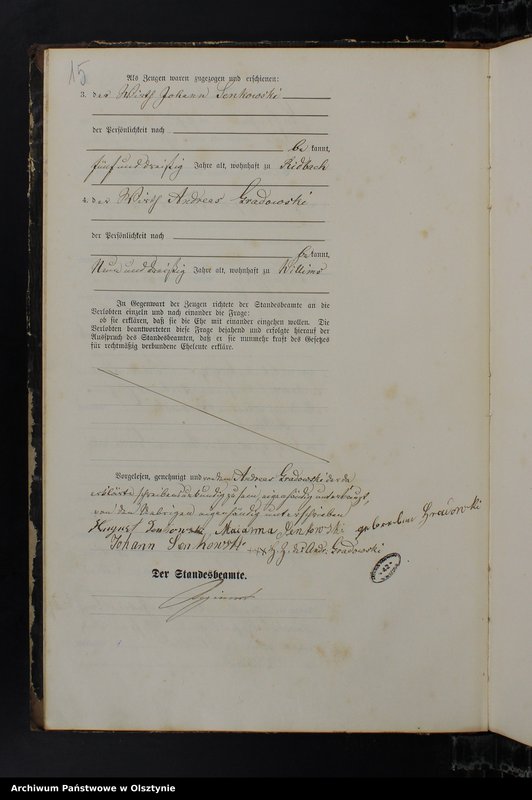 15
Als Zeugen waren zugezogen und erschienen:
3. der Wirth Johann Senkowski
der Persönlichkeit nach
be kannt,
fünf und dreißig Jahre alt, wohnhaft zu Ridbach
4. der Wirth Andreas Gradowski
der Persönlichkeit nach
be kannt,
Neun und dreißig Jahre alt, wohnhaft zu Willims
In Gegenwart der Zeugen richtete der Standesbeamte an die
Verlobten einzeln und nach einander die Frage:
ob sie erklären, daß sie die Ehe mit einander eingehen wollen. Die
Verlobten beantworteten diese Frage bejahend und erfolgte hierauf der
Ausspruch des Standesbeamten, daß er sie nunmehr kraft des Gesetzes
für rechtmäßig verbundene Eheleute erkläre.
Vorgelesen, genehmigt und von dem Andreas Gradowski der da
erklärte schreibensunkundig zu sein, eigenhändig unterkreuzt,
von den Uebrigen eigenhändig unterschrieben
August Senkowski, Maianna Senkowski geborene Gradowski
Johann Senkowski +++ H. Z. des Andr. Gradowski
Der Standesbeamte.
Archiwum Państwowe w Olsztynie